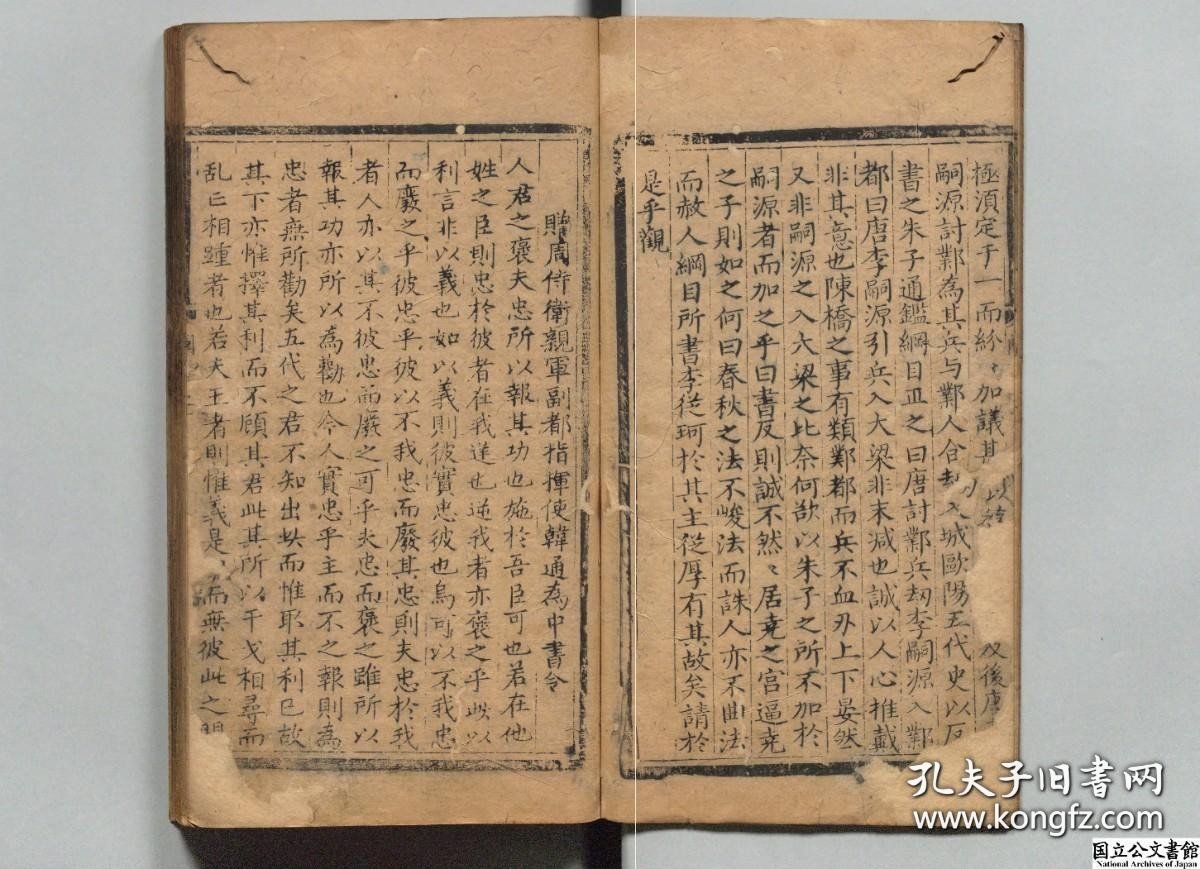 極須定于一而紛〻加議其 以於
嗣源討鄴為其兵与鄴人合劫入城歐陽五代史以反
書之朱子通鑑綱目正之曰唐討鄴兵劫李嗣源入鄴
都曰唐李嗣源引兵入大梁非末減也誠以人心推戴
非其意也陳橋之事有類鄴都而兵不血刃上下晏然
又非嗣源之入大梁之比奈何欲以朱子之所不加於
嗣源者而加之乎曰書反則誠不然〻居堯之宮逼堯
之子則如之何曰春秋之法不峻法而誅人亦不曲法
而赦人綱目所書李從珂於其主從厚有其故矣請於
是乎觀
贈周侍衛親軍副都指揮使韓通為中書令
人君之褒夫忠所以報其功也施於吾臣可也若在他
姓之臣則忠於彼者在我逆也逆我者亦褒之乎此以
利言非以義也如以義則彼實忠彼也烏可以不我忠
而廢之乎彼忠乎彼以不我忠而廢其忠則夫忠於我
者人亦以其不彼忠而廢之可乎夫忠而褒之雖所以
報其功亦所以為勸也今人實忠乎主而不之報則為
忠者無所勸矣五代之君不知出此而惟取其利已故
其下亦惟擇其利而不顧其君此其所以干戈相尋而
乱亡相踵者也若夫王者則惟義是 而無彼此之
孔夫子旧书网
www.kongfz.com
国立公文書館
National Archives of Japan